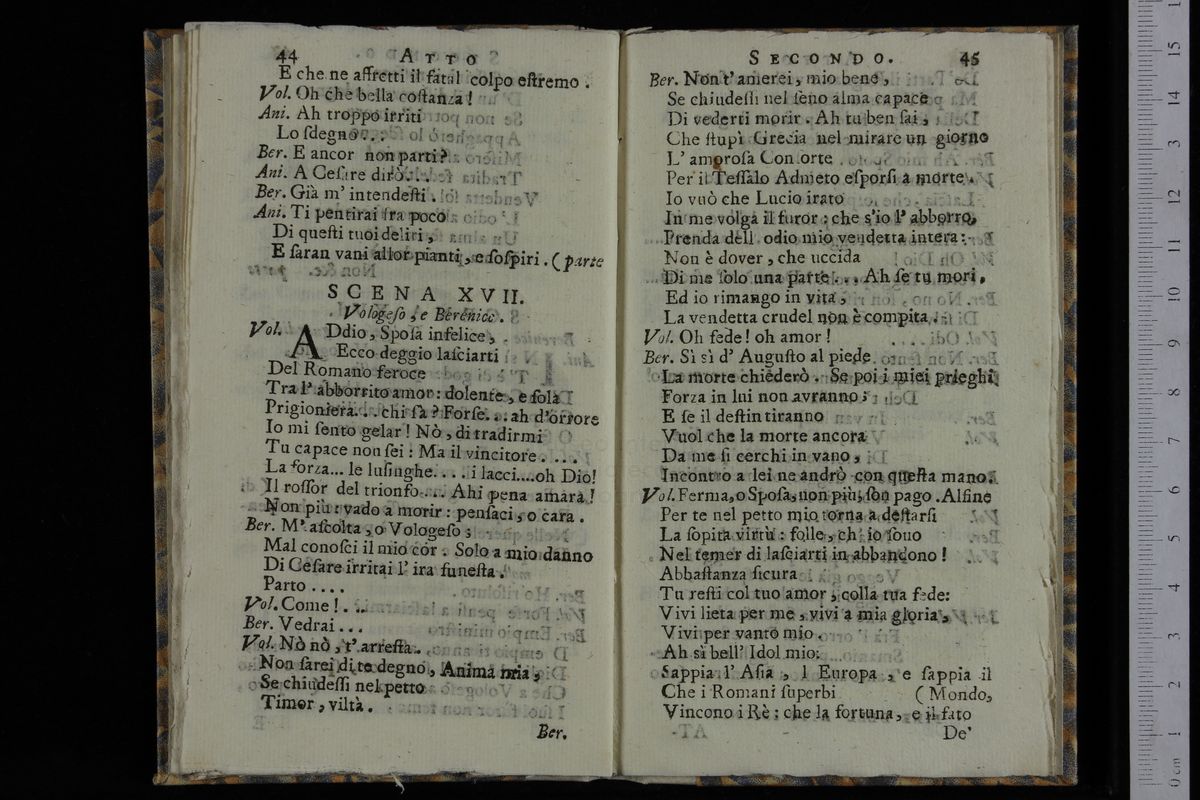 44 ATTO
E che ne affretti il fatal colpo eſtremo .
Vol. Oh che bella coſtanza !
Ani. Ah troppo irriti
Lo ſdegno . . .
Ber. E ancor non parti ?
Ani. A Ceſare dirò . . .
Ber. Già m' intendeſti .
Ani. Ti pentirai fra poco
Di queſti tuoi deliri ,
E ſaran vani allor pianti , e ſoſpiri . ( parte
SCENA XVII.
Vologeſo , e Berenice .
Vol. ADdio , Spoſa infelice ,
Ecco deggio laſciarti
Del Romano feroce
Tra l' abborrito amor : dolente , e ſola
Prigioniera . . . chi ſà ? Forſe . . . ah d'orrore
Io mi ſento gelar ! Nò , di tradirmi
Tu capace non ſei : Ma il vincitore . . . .
La forza... le luſinghe . . . . i lacci....oh Dio!
Il roſſor del trionfo . . . Ahi pena amara !
Non più : vado a morir : penſaci , o cara .
Ber. M' aſcolta , o Vologeſo ;
Mal conoſci il mio cor . Solo a mio danno
Di Ceſare irritai l' ira funeſta .
Parto . . . .
Vol. Come ! . . .
Ber. Vedrai . . .
Vol. Nò nò , t' arreſta .
Non ſarei di te degno , Anima mia ,
Se chiudeſſi nel petto
Timor , viltà .
Ber.
SECONDO. 45
Ber. Non t' amerei , mio bene ,
Se chiudeſſi nel ſeno alma capace
Di vederti morir . Ah tu ben ſai ,
Che ſtupì Grecia nel mirare un giorno
L' amoroſa Conſorte
Per il Teſſalo Admeto eſporſi a morte .
Io vuò che Lucio irato
In me volga il furor : che s'io l' abborro,
Prenda dell odio mio vendetta intera :
Non è dover , che uccida
Di me ſolo una parte . . . Ah ſe tu mori ,
Ed io rimango in vita ,
La vendetta crudel non è compita .
Vol. Oh fede ! oh amor !
Ber. Sì sì d' Auguſto al piede
La morte chiederò . Se poi i miei prieghi
Forza in lui non avranno ;
E ſe il deſtin tiranno
Vuol che la morte ancora
Da me ſi cerchi in vano ,
Incontro a lei ne andrò con queſta mano.
Vol. Ferma, o Spoſa, non più, ſon pago . Alfine
Per te nel petto mio torna a deſtarſi
La ſopita virtù : folle , ch' io ſono
Nel temer di laſciarti in abbandono !
Abbaſtanza ſicura
Tu reſti col tuo amor , colla tua fede:
Vivi lieta per me , vivi a mia gloria ,
Vivi per vanto mio .
Ah sì bell' Idol mio :
Sappia l' Aſia , l Europa , e ſappia il
Che i Romani ſuperbi ( Mondo,
Vincono i Rè : che la fortuna , e il fato
De'